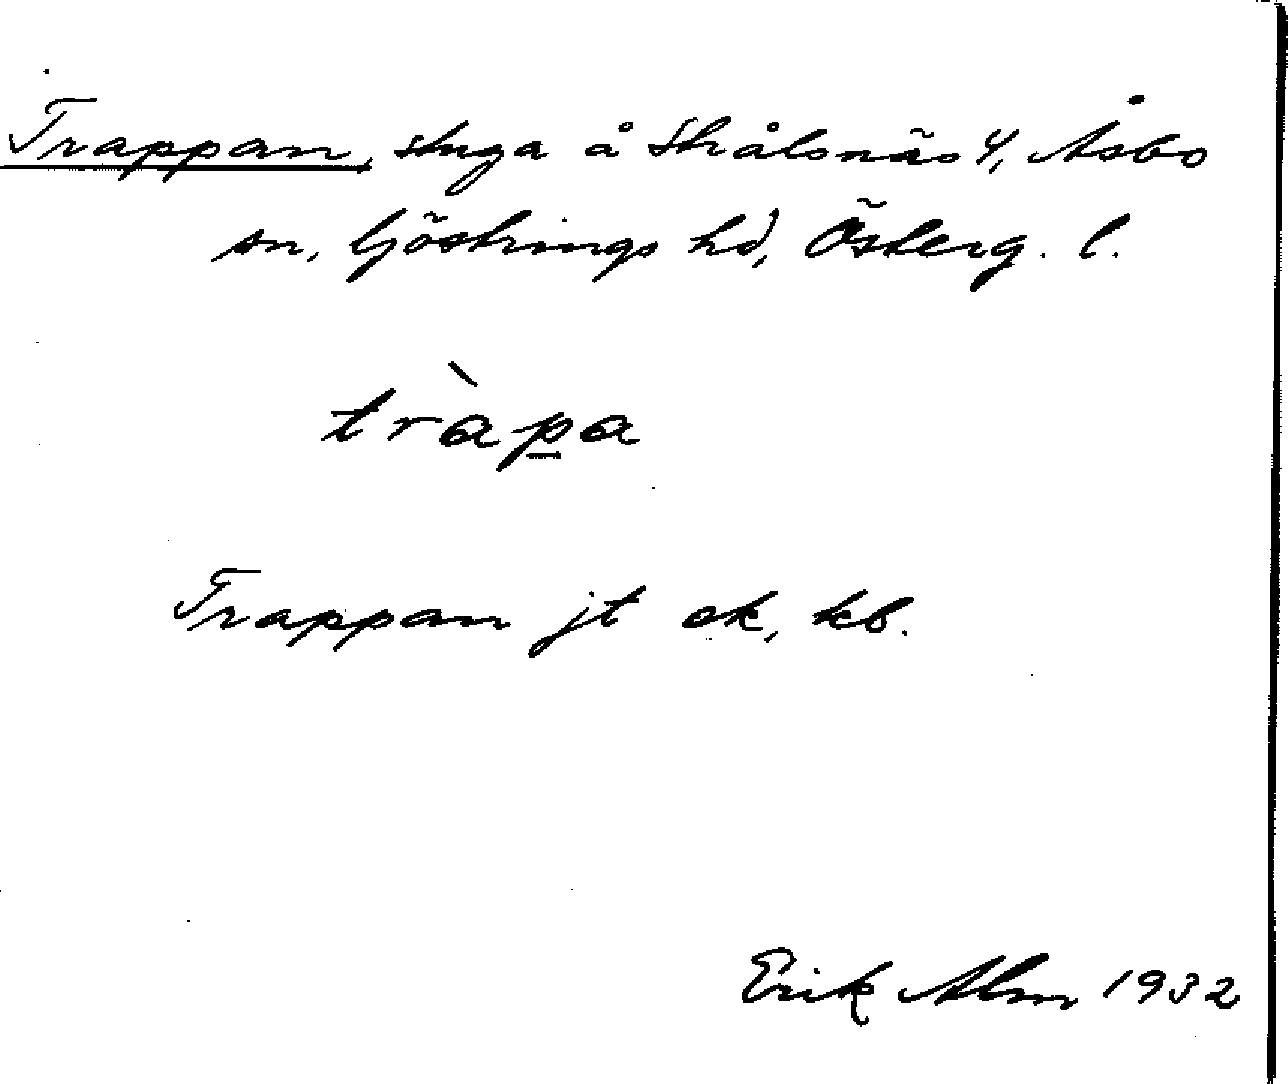 Trappan, stuga å Strålsnäs 4, Åsbo
sn, Göstrings hd, Österg. l.
tràpa
Trappan jt ek, kb.
Erik Alm 1932